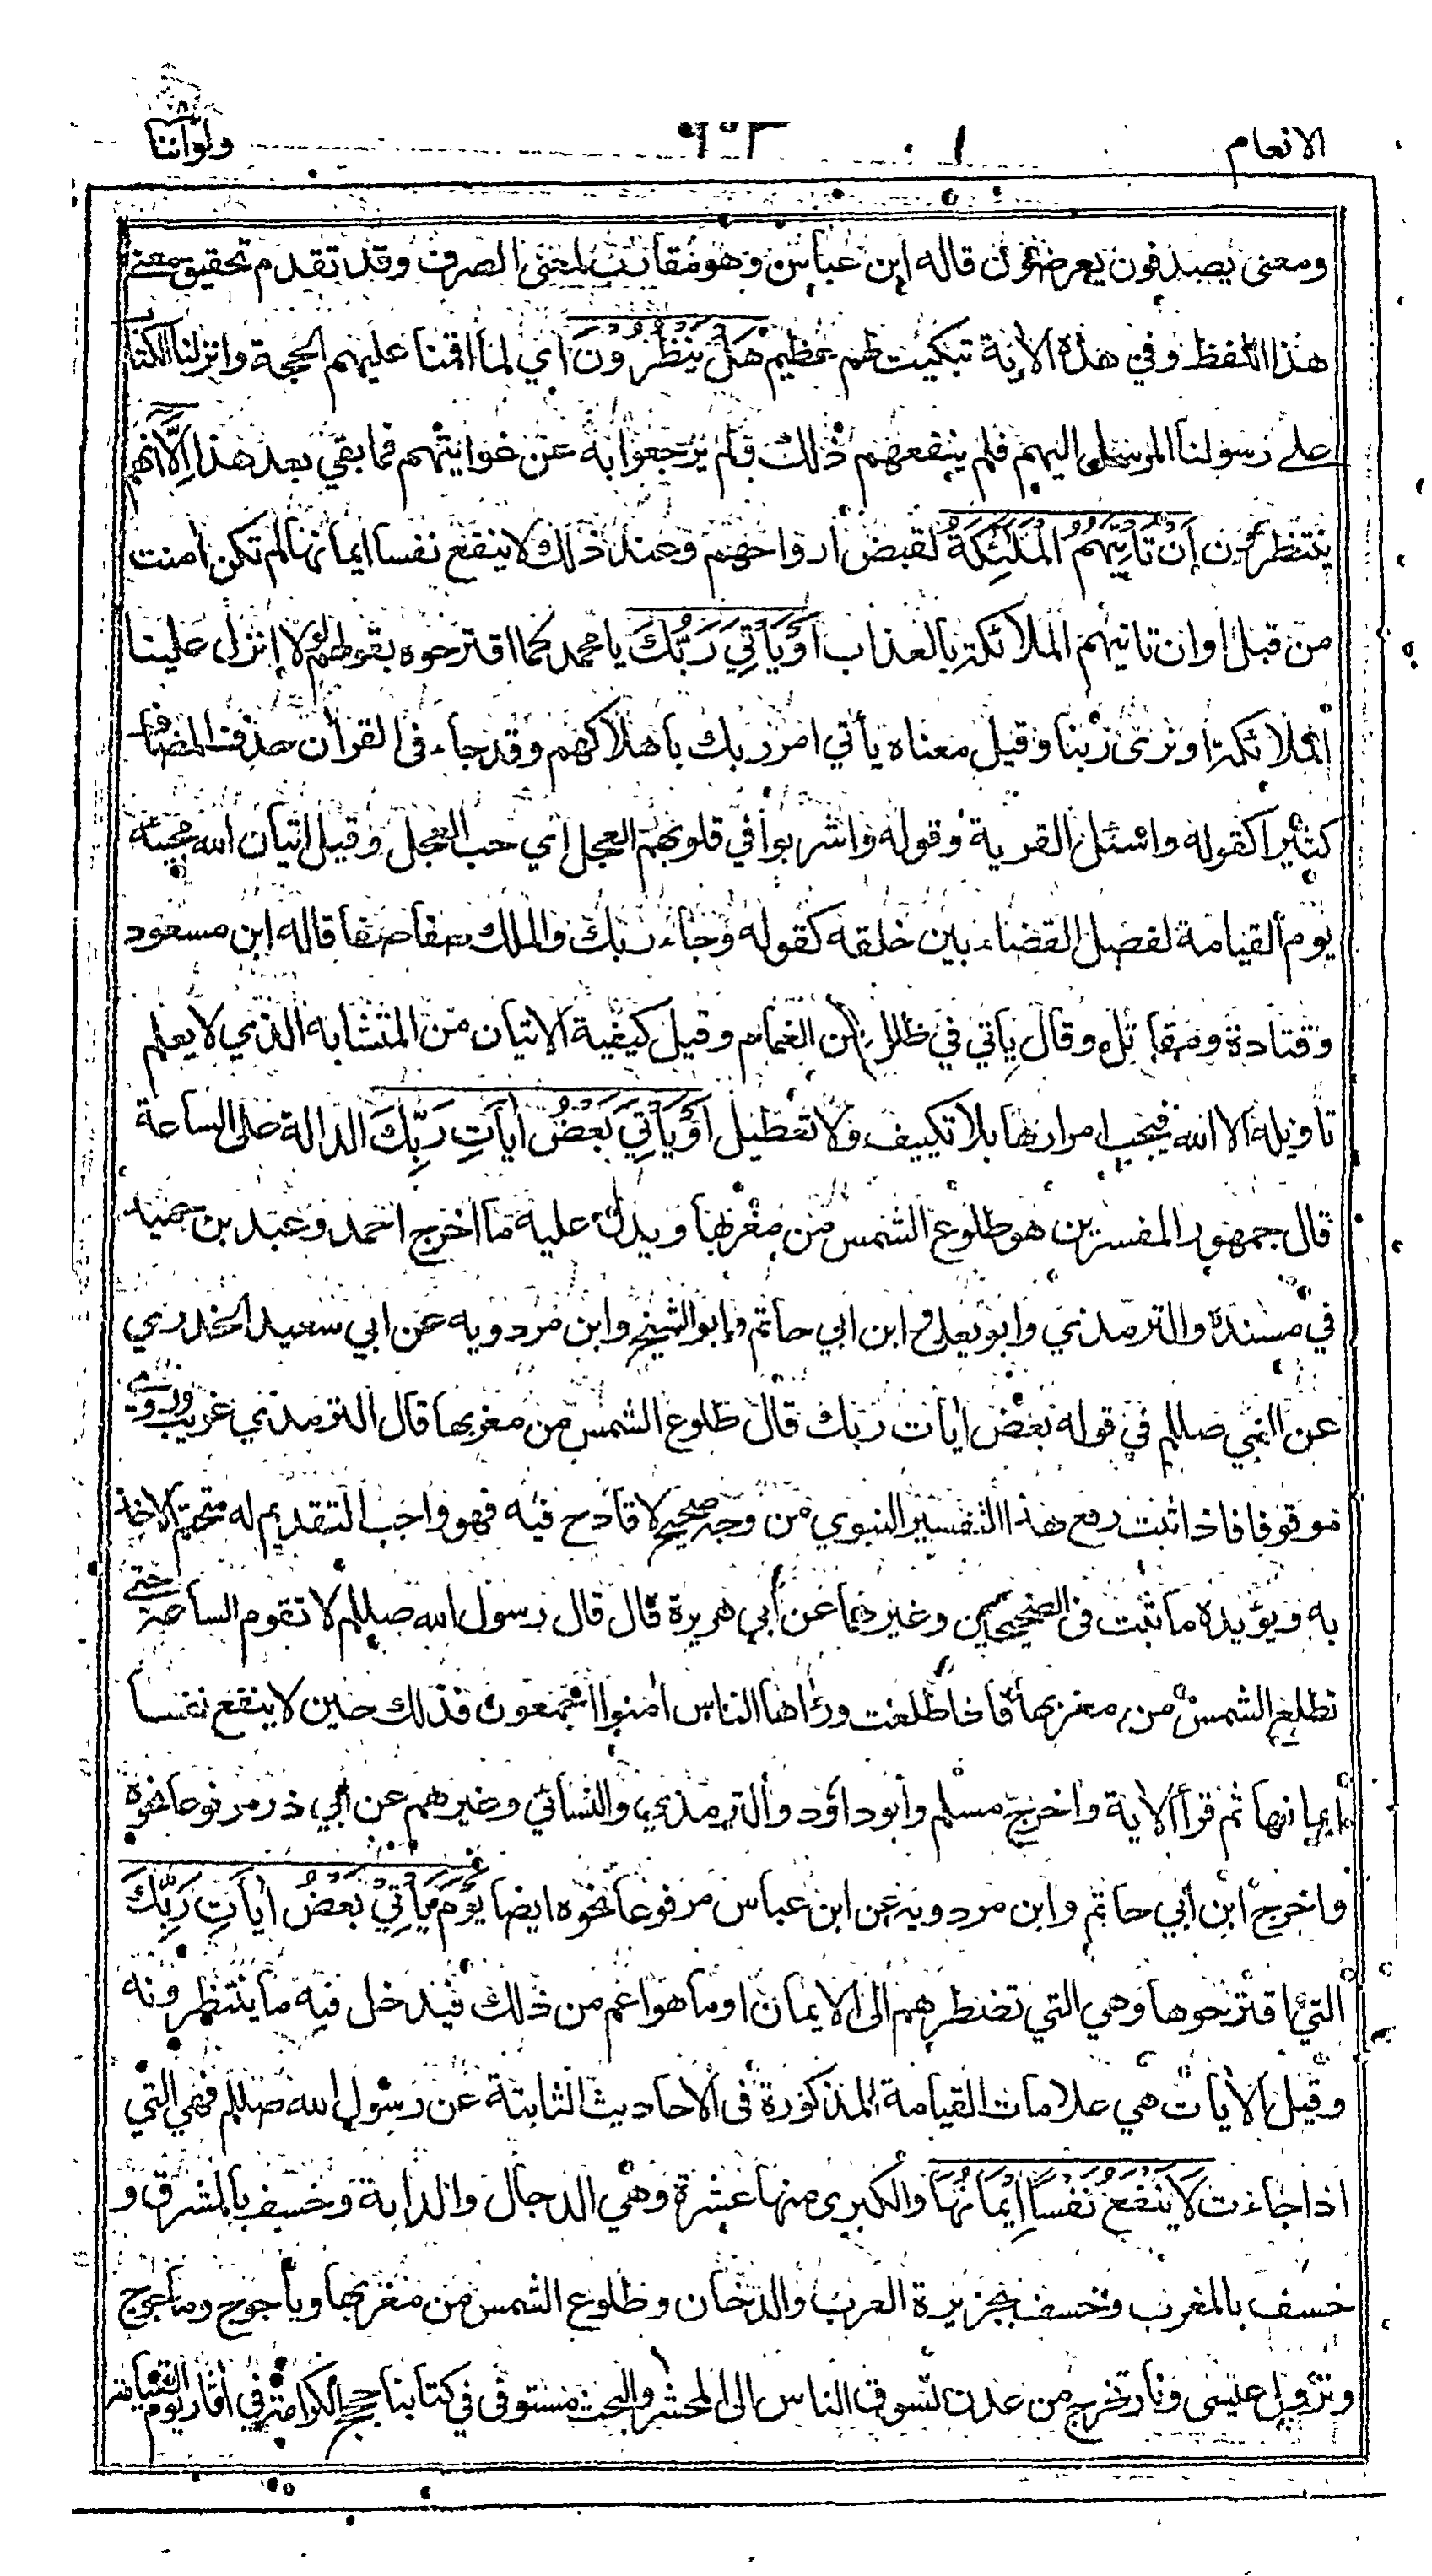 الانعام ٦٠٢ ولواننا
ومعنى يصدفون يعرضون قاله ابن عباس وهو مقارب لمعنى الصرف وقد تقدم تحقيق معنى
هذا اللفظ وفي هذه الأية تبكيت لهم عظيم هَلْ يَنْظُرُوْنَ اي لما اقمنا عليهم الحجة وانزلنا الكتاب
على رسولنا المرسل اليهم فلم ينفعهم ذلك ولم يرجعوا به عن غوايتهم فما بقي بعد هذا اِلَّا انهم
ينتظرون اَنْ تَأْتِيَهُمُ الْمَلٰئِكَةُ لقبض ارواحهم وعند ذلك لا ينفع نفسا ايمانها لم تكن امنت
من قبل او ان تاتيهم الملائكة بالعذاب اَوْ يَأْتِيَ رَبُّكَ يا محمد كما اقترحوه بقولهم لولا انزل علينا
الملائكة او نرى ربنا وقيل معناه يأتي امر ربك باهلاكهم وقد جاء في القرأن حذف المضاف
كثيرا كقوله واسئل القرية وقوله واشربوا في قلوبهم العجل اي حب العجل وقيل اتيان الله مجيئه
يوم القيامة لفصل القضاء بين خلقه كقوله وجاء ربك والملك صفا صفا قاله ابن مسعود
وقتادة ومقاتل وقال ياتي في ظلل من الغمام وقيل كيفية الاتيان من المتشابه الذي لا يعلم
تاويله الا الله فيجب امرارها بلا تكييف ولا تعطيل اَوْ يَأْتِيَ بَعْضُ اٰيَاتِ رَبِّكَ الدالة على الساعة
قال جمهور المفسرين هو طلوع الشمس من مغربها ويدل عليه ما اخرج احمد وعبد بن حميد
في مسنده والترمذي وابو يعلى وابن ابي حاتم وابو الشيخ وابن مردويه عن ابي سعيد الخدري
عن النبي صللم في قوله بعض ايات ربك قال طلوع الشمس من مغربها قال الترمذي غريب وروي
موقوفا فاذا ثبت رفع هذا التفسير النبوي من وجه صحيح لا قادح فيه فهو واجب التقديم له متحتم الاخذ
به ويؤيده ما ثبت في الصحيحين وغيرهما عن أبي هريرة قال قال رسول الله صللم لا تقوم الساعة حتى
تطلع الشمس من مغربها فاذا طلعت ورأها الناس امنوا اجمعون فذلك حين لا ينفع نفسا
ايمانها ثم قرأ الاية واخرج مسلم وأبو داؤد والترمذي والنسائي وغيرهم عن ابي ذر مرفوعا نحوه
واخرج ابن أبي حاتم وابن مردويه عن ابن عباس مرفوعا نحوه ايضا يَوْمَ يَأْتِيْ بَعْضُ اٰيَاتِ رَبِّكَ
التي اقترحوها وهي التي تضطرهم الى الايمان او ما هو اعم من ذلك فيدخل فيه ما ينتظرونه
وقيل الأيات هي علامات القيامة المذكورة في الاحاديث الثابتة عن رسول الله صللم فهي التي
اذا جاءت لَا يَنْفَعُ نَفْسًا اِيْمَانُهَا والكبرى منها عشرة وهي الدجال والدابة وخسف بالمشرق و
خسف بالمغرب وخسف بجزيرة العرب والدخان وطلوع الشمس من مغربها ويأجوج ومأجوج
ونزول عيسى ونار تخرج من عدن تسوق الناس الى المحشر والبحث مستوفى في كتابنا حجج الكرامة في أثار يوم القيامة